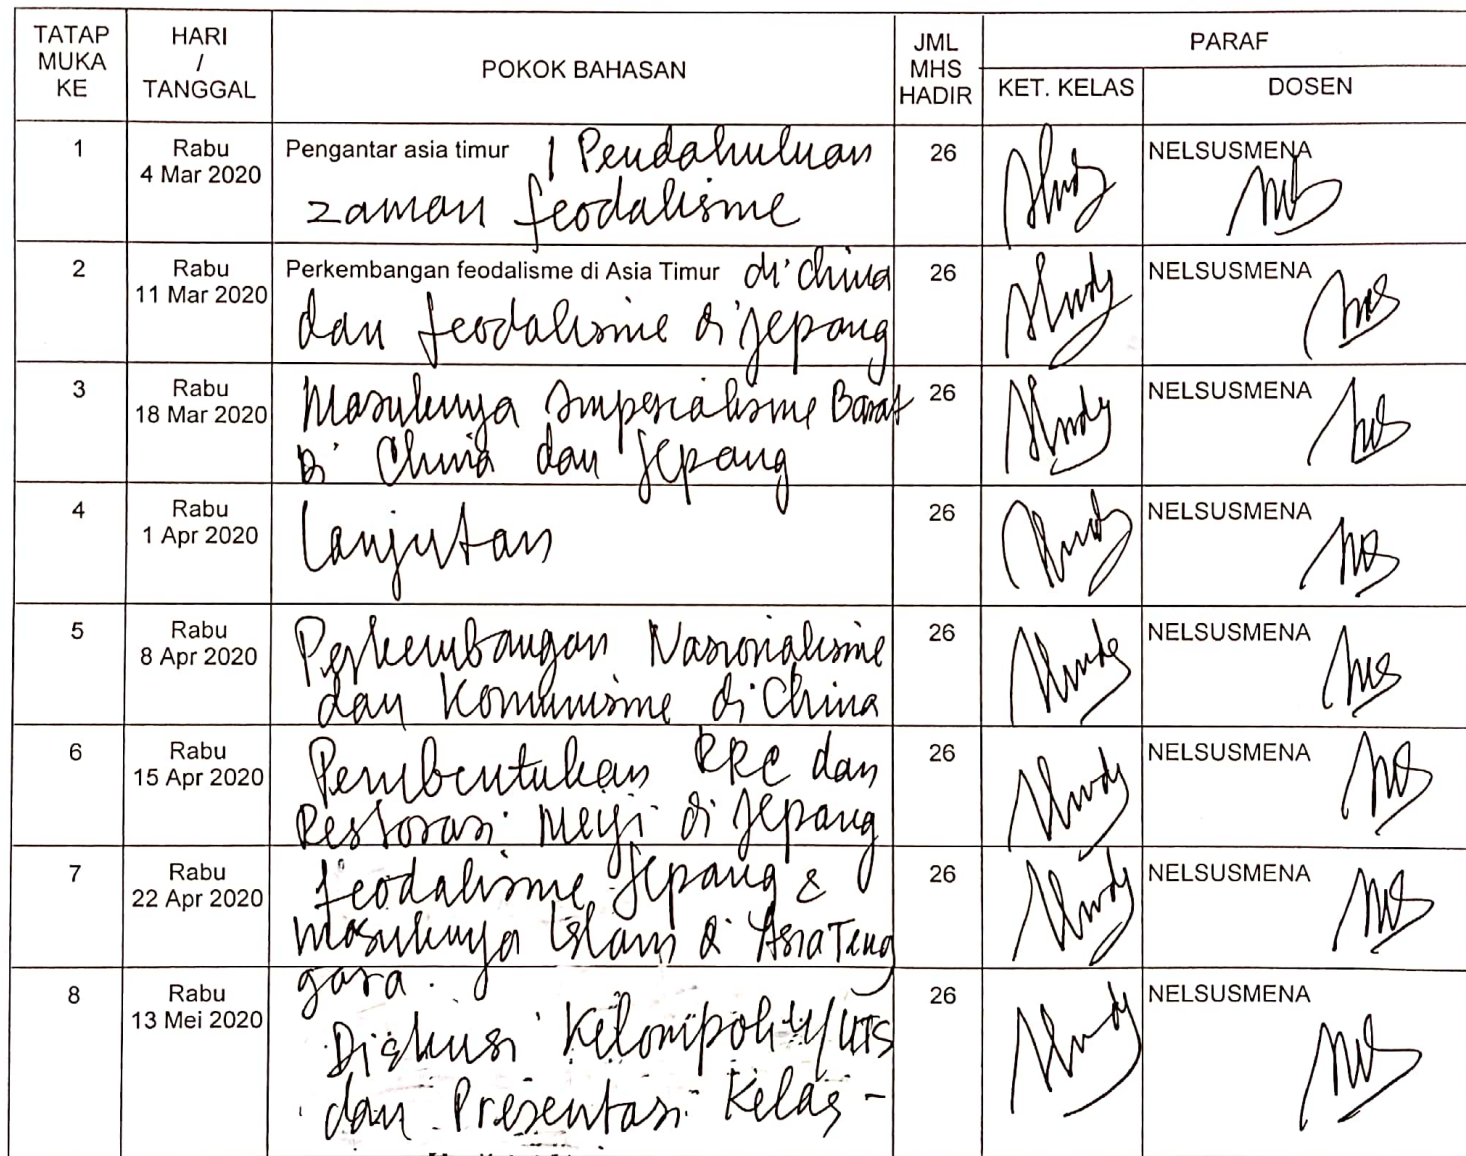 TATAP MUKA KE
HARI / TANGGAL
POKOK BAHASAN
JML MHS HADIR
PARAF
KET. KELAS
DOSEN
1
Rabu
4 Mar 2020
Pengantar asia timur / Pendahuluan
zaman feodalisme
26
NELSUSMENA
2
Rabu
11 Mar 2020
Perkembangan feodalisme di Asia Timur di China
dan feodalisme di Jepang
26
NELSUSMENA
3
Rabu
18 Mar 2020
Masuknya Imperialisme Barat
di China dan Jepang
26
NELSUSMENA
4
Rabu
1 Apr 2020
Lanjutan
26
NELSUSMENA
5
Rabu
8 Apr 2020
Perkembangan Nasionalisme
dan Komunisme di China
26
NELSUSMENA
6
Rabu
15 Apr 2020
Pembentukan RRC dan
Restorasi Meiji di Jepang
26
NELSUSMENA
7
Rabu
22 Apr 2020
feodalisme Jepang &
masuknya Islam di Asia Teng
gara.
26
NELSUSMENA
8
Rabu
13 Mei 2020
Diskusi Kelompok /UTS
dan Presentasi Kelas -
26
NELSUSMENA